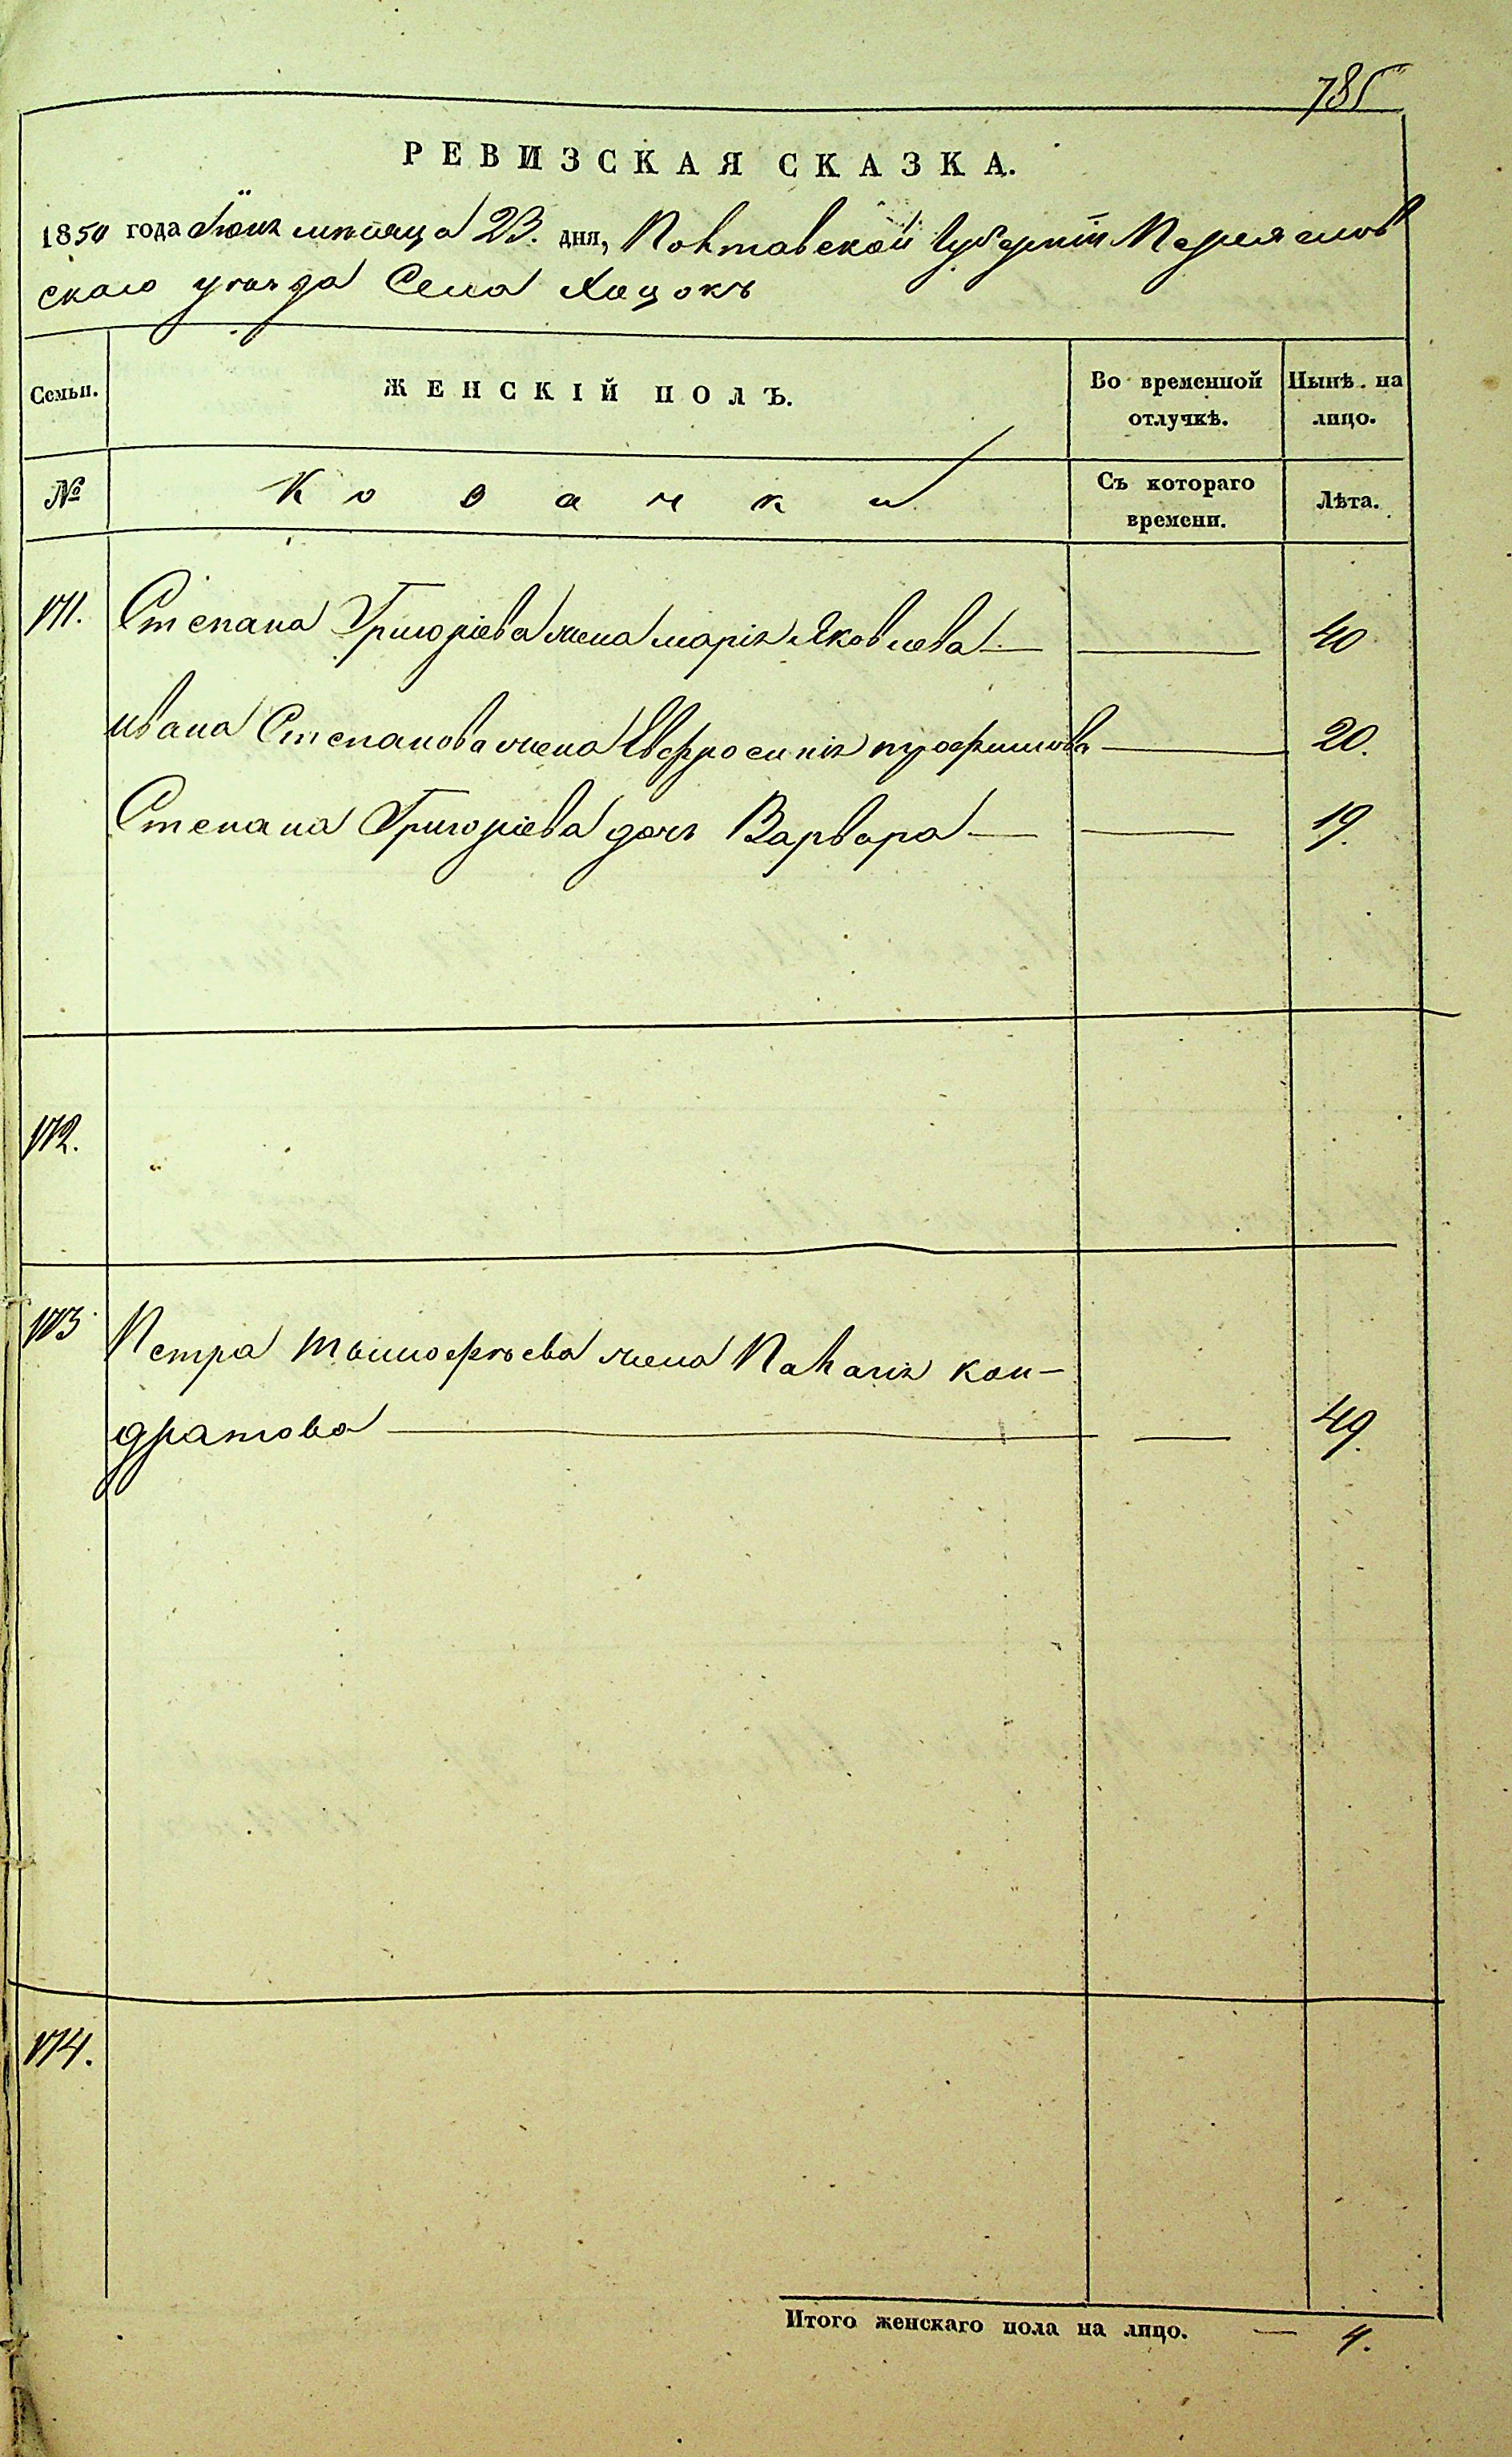 785
РЕВИЗСКАЯ СКАЗКА.
1850 года Іюня мѣсяца 23. дня, Полтавской Губерніи Переяслов
скаго уѣзда Села Хоцокъ
Семьи.
ЖЕНСКІЙ ПОЛЪ.
Во временной
отлучкѣ.
Нынѣ на
лицо.
№
Козачки
Съ котораго
времени.
Лѣта.
171. Степана Григоріева жена марія Яковлева — — 40
ивана Степанова жена Евфросинія трофимова — 20.
Степана Григоріева дочь Варвара — — 19.
172.
173 Петра тимофѣева жена Палагія кон-
дратова — — 49.
174.
Итого женскаго пола на лицо. — 4.